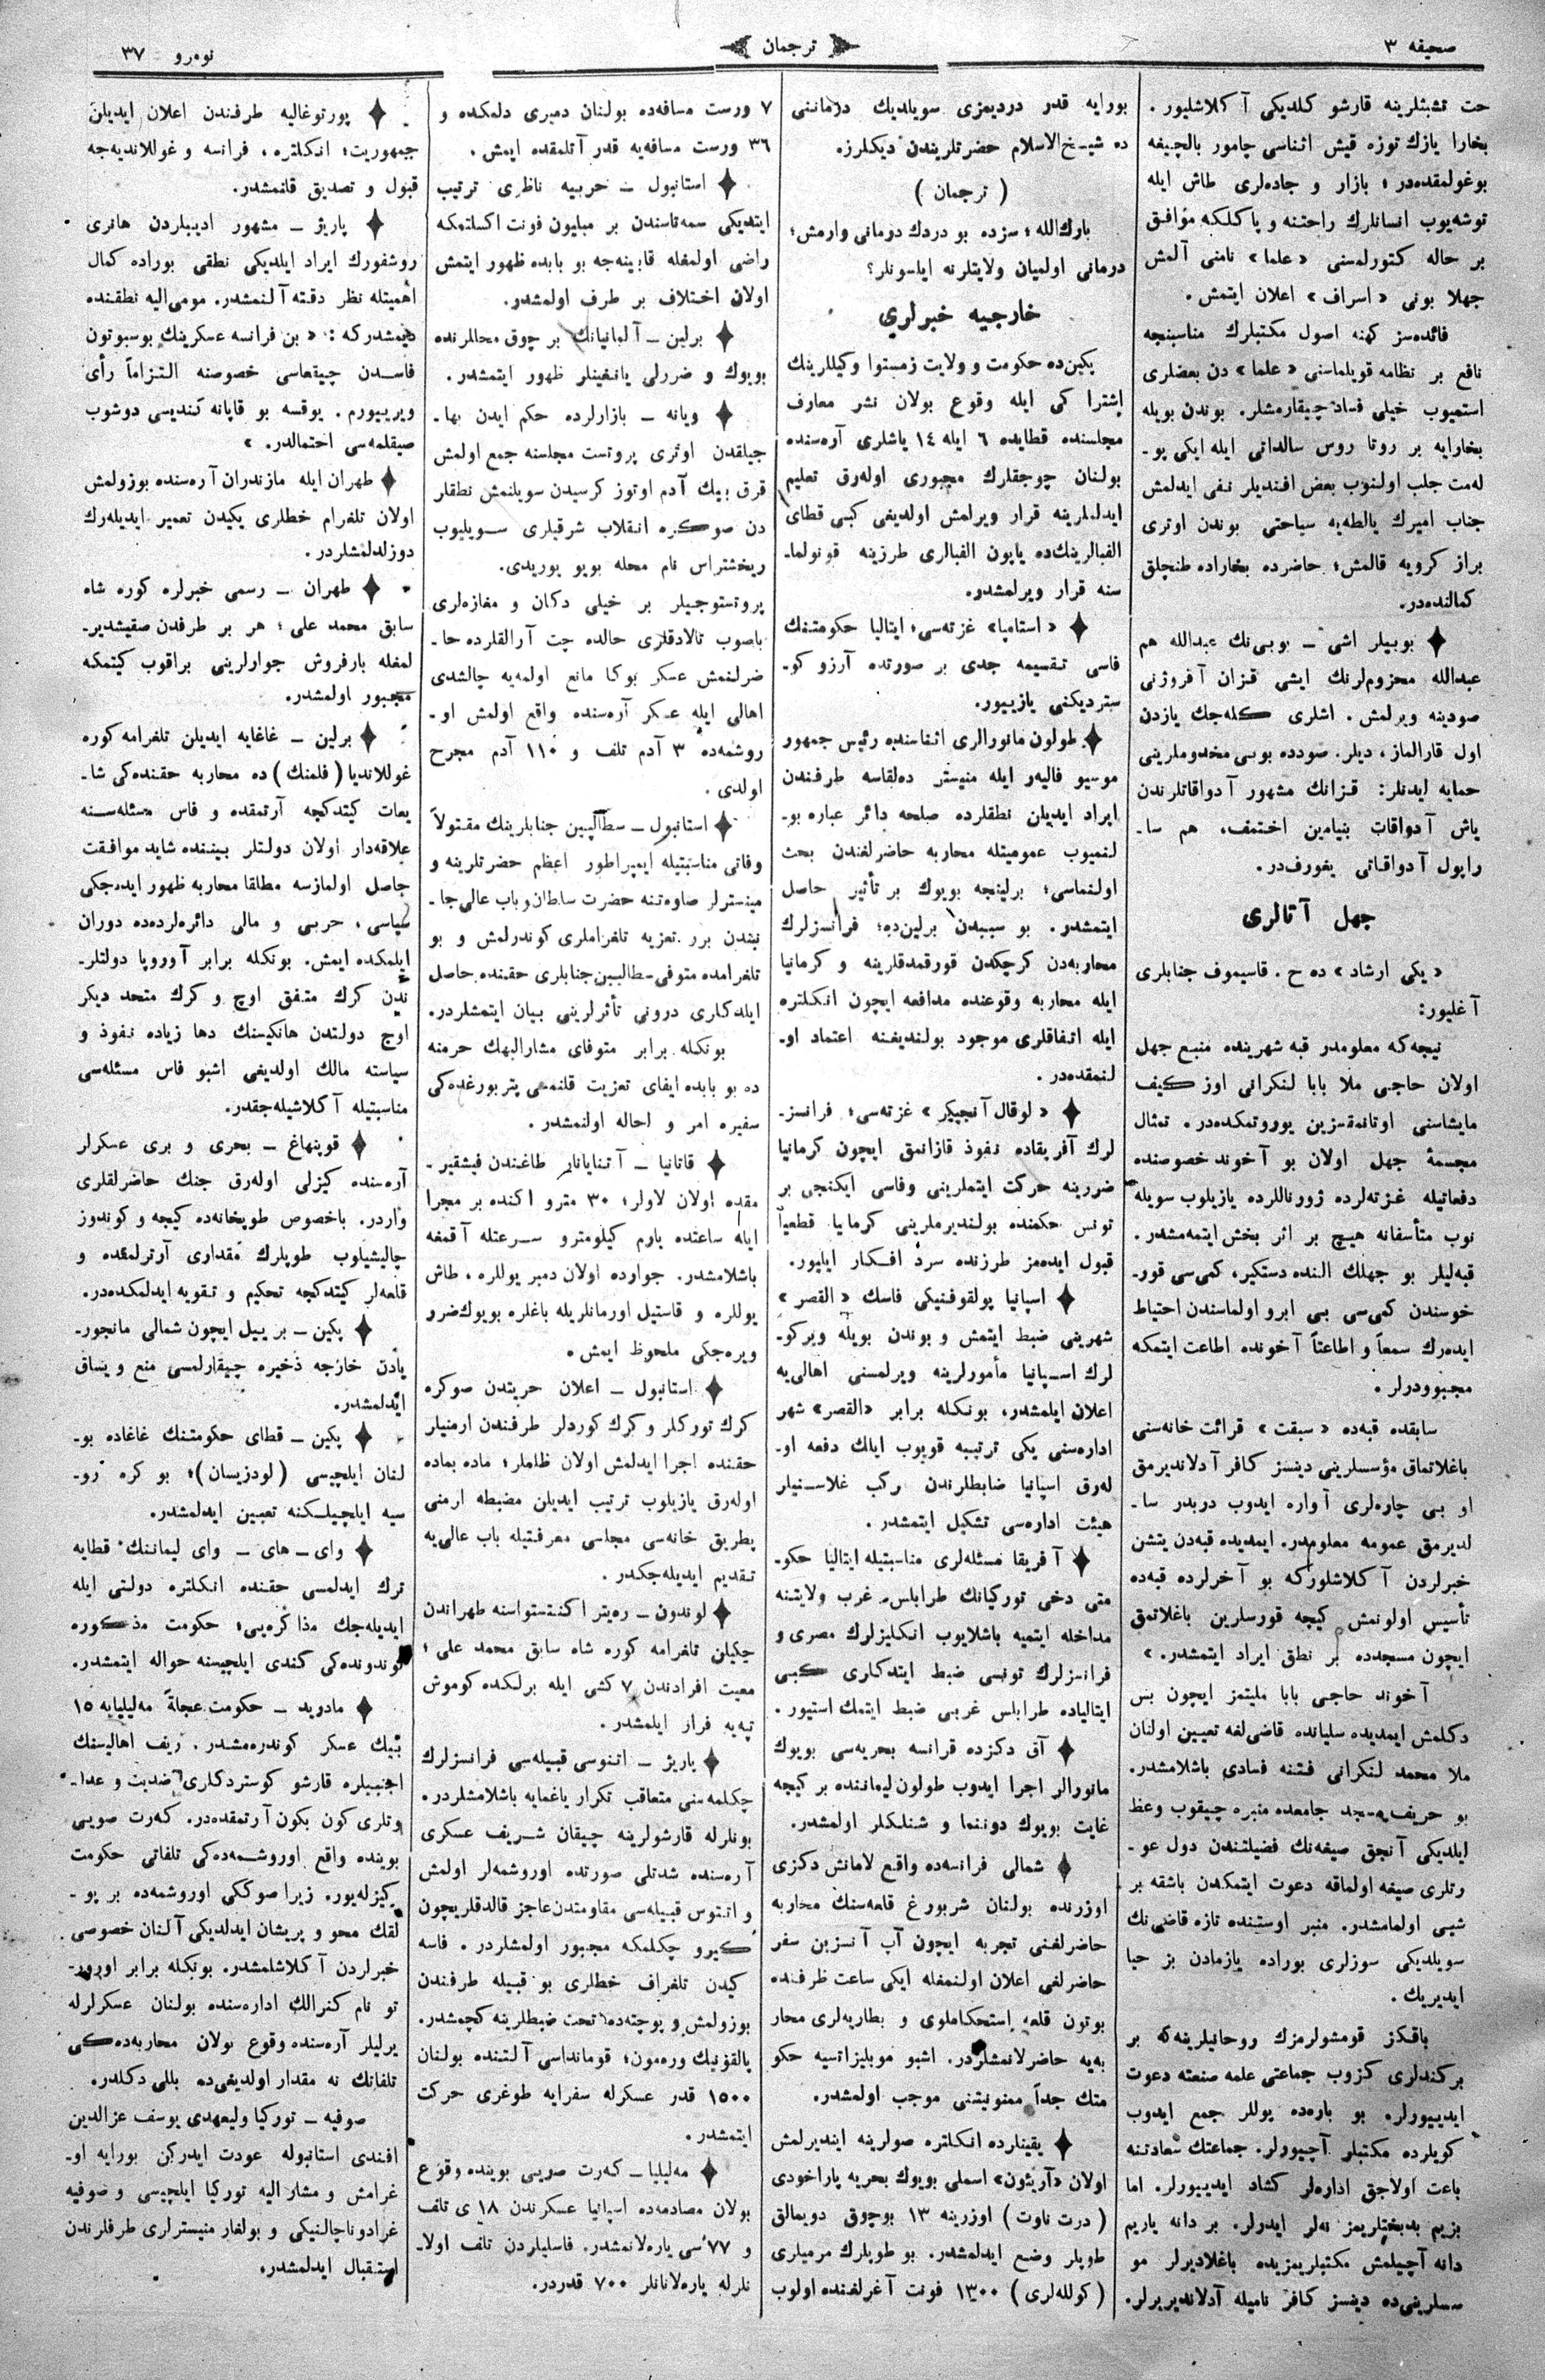 صحیفه ۳
ترجمان
نومرو ۳۷
حت تشبثلرینه قارشو کلدیکی آکلاشلیور.
بخارا یازك توزه قیش اثناسی چامور بالچیغه
بوغولمقده‌در؛ بازار و جاده‌لری طاش ایله
توشه‌یوب انسانلرك راحتنه و پاکلکه موافق
بر حاله کتورلمسنی «علما» نامنی آلمش
جهلا بونی «اسراف» اعلان ایتمش.
فائده‌سز کهنه اصول مکتبلرك مناسبنجه
نافع بر نظامه قویلماسنی «علما» دن بعضلری
استمیوب خیلی فساد چیقارمشلر. بوندن بویله
بخارایه بر روتا روس سالداتی ایله ایکی پو-
له‌مت جلب اولنوب بعض افندیلر نفی ایدلمش
جناب امیرك یالطه‌یه سیاحتی بوندن اوتری
براز کرویه قالمش؛ حاضرده بخاراده طنچلق
کمالنده‌در.
بوبیلر اشی – بوبی‌نك عبدالله هم
عبدالله مخزوم‌لرنك ایشی قزان آقروژنی
صودینه ویرلمش. اشلری کله‌جك یازدن
اول قارالماز، دیلر. صودده بوبی مخدوملرینی
حمایه ایدنلر: قزانك مشهور آدواقاتلرندن
یاش آدواقات بنیامین اختمف، هم سا-
راپول آدواقاتی یغورف‌در.
جهل آتالری
«یکی ارشاد» ده ح. قاسیموف جنابلری
آغلیور:
نیجه‌که معلومدر قبه شهرینده منبع جهل
اولان حاجی ملا بابا لنکرانی اوز کیف
مایشاسنی اوتانمه‌زین یوروتمکده‌در. تمثال
مجسمهٔ جهل اولان بو آخوند خصوصنده
دفعاتیله غزته‌لرده ژورناللرده یازیلوب سویله
نوب متأسفانه هیچ بر اثر بخش ایتمه‌مشدر.
قبه‌لیلر بو جهلك النده دستکیر، کمی‌سی قور-
خوسندن کمی‌سی بی ابرو اولماسندن احتیاط
ایده‌رك سمعاً و اطاعتاً آخونده اطاعت ایتمکه
مجبوودرلر.
سابقده قبه‌ده «سبقت» قرائت خانه‌سنی
باغلاتماق مؤسسلرینی دینسز کافر آدلاندیرمق
او بی چاره‌لری آواره ایدوب دربدر سا-
لدیرمق عمومه معلومدر. ایمدیده قبه‌دن یتشن
خبرلردن آکلاشلورکه بو آخرلرده قبه‌ده
تأسیس اولونمش کیجه قورسلرین باغلاتمق
ایچون مسجدده بر نطق ایراد ایتمشدر.»
آخوند حاجی بابا ملیتمز ایچون بس
دکلمش ایمدیده سلیانده قاضی‌لغه تعیین اولنان
ملا محمد لنکرانی فتنه فسادی باشلامشدر.
بو حریف مسجد جامعده منبره چیقوب وعظ
ایلدیکی آنجق صیغه‌نك فضیلتندن دول عو-
رتلری صیغه اولماقه دعوت ایتمکدن باشقه بر
شیی اولمامشدر. منبر اوستنده تازه قاضی‌نك
سویلدیکی سوزلری بوراده یازمادن بز حیا
ایدیریك.
باقکز قومشولرمزك روحانیلرینه‌که بر
بر کندلری کزوب جماعتی علمه صنعته دعوت
ایدییورلر. بو باره‌ده یوللر جمع ایدوب
کویلرده مکتبلر آچیورلر. جماعتك سعادتنه
باعث اولاجق اداره‌لر کشاد ایدییورلر. اما
بزیم بدبختلریمز نه‌لر ایدرلر. بر دانه یاریم
دانه آچیلمش مکتبلریمزیده باغلادیرلر مو
سسلرینی‌ده دینسز کافر نامیله آدلاندیریرلر.
بورایه قدر دردیمزی سویلدیك درماننی
ده شیخ‌الاسلام حضرتلریندن دیکلرز.
(ترجمان)
بارك‌الله؛ سزده بو دردك درمانی وارمش؛
درمانی اولمیان ولایتلرنه ایلسونلر؟
خارجیه خبرلری
پکین‌ده حکومت و ولایت زمستوا وکیللرینك
اشتراکی ایله وقوع بولان نشر معارف
مجلسنده قطایده ٦ ایله ١٤ یاشلری آره‌سنده
بولنان چوجقلرك مجبوری اوله‌رق تعلیم
ایدلملرینه قرار ویرلمش اولدیغی کبی قطای
الفبالرینك‌ده یاپون الفبالری طرزینه قونولما-
سنه قرار ویرلمشدو.
«استامپا» غزته‌سی؛ ایتالیا حکومتنك
فاسی تقسیمه جدی بر صورتده آرزو کو-
ستردیکنی یازییور.
طولون مانورالری اثناسنده رئیس جمهور
موسیو فالیه‌ر ایله منیستر ده‌لقاسه طرفندن
ایراد ایدیلن نطقلرده صلحه دائر عباره بو-
لنمیوب عمومیتله محاربه حاضرلغندن بحث
اولنماسی؛ برلینجه بویوك بر تأثیر حاصل
ایتمشدر. بو سببدن برلین‌ده؛ فرانسزلرك
محاربه‌دن کرچکدن قورقمدقلرینه و کرمانیا
ایله محاربه وقوعنده مدافعه ایچون انکلتره
ایله اتفاقلری موجود بولندیغنه اعتماد او-
لنمقده‌در.
«لوقال آنچیکر» غزته‌سی؛ فرانسز-
لرك آفریقاده نفوذ قازانمق ایچون کرمانیا
ضررینه حرکت ایتملرینی وفاسی ایکنجی بر
تونس حکمنده بولندیرملرینی کرمانیا قطعیاً
قبول ایده‌مز طرزنده سرد افکار ایلیور.
اسپانیا پولقوفنیکی فاسك «القصر»
شهرینی ضبط ایتمش و بوندن بویله ویرکو-
لرك اسپانیا مأمورلرینه ویرلمسنی اهالی‌یه
اعلان ایلمشدر، بونکله برابر «القصر» شهر
اداره‌سنی یکی ترتیبه قویوب ایلك دفعه او-
له‌رق اسپانیا ضابطلرندن رکب غلاسنیلر
هیئت اداره‌سی تشکیل ایتمشدر.
آفریقا مسئله‌لری مناسبتیله ایتالیا حکو-
متی دخی تورکیانك طرابلس غرب ولایتنه
مداخله ایتمیه باشلایوب انکلیزلرك مصری و
فرانسزلرك تونسی ضبط ایتدکلری کبی
ایتالیاده طرابلس غربی ضبط ایتمك استیور.
آق دکزده فرانسه بحریه‌سی بویوك
مانورالر اجرا ایدوب طولون لیماننده بر کیجه
غایت بویوك دوننما و شنلکلر اولمشدر.
شمالی فرانسه‌ده واقع لامانش دکزی
اوزرنده بولنان شربورغ قلعه‌سنك محاربه
حاضرلغنی تجربه ایچون آپ آنسزین سفر
حاضرلغی اعلان اولنمغله ایکی ساعت ظرفنده
بوتون قلعه استحکاملری و بطاریه‌لری محار
به‌یه حاضرلانمشلردر. اشبو موبلیزاتسیه حکو
متك جداً ممنونیتنی موجب اولمشدر.
یقینلرده انکلتره صولرینه ایندیرلمش
اولان «آریئون» اسملی بویوك بحریه پاراخودی
(درت ناوت) اوزرینه ١٣ بوچوق دویمالق
طوپلر وضع ایدلمشدر. بو طوپلرك مرمیلری
(کولله‌لری) ١٣٠٠ فونت آغرلغنده اولوب
٧ ورست مسافه‌ده بولنان دمیری دلمکده و
٣٦ ورست مسافه‌یه قدر آتلمقده ایمش.
استانبول – حربیه ناظری ترتیب
ایتدیکی سمه‌تاسندن بر میلیون فونت اکسلتمکه
راضی اولمغله قابینه‌جه بو بابده ظهور ایتمش
اولان اختلاف بر طرف اولمشدو.
برلین – آلمانیانك بر چوق محللرنده
بویوك و ضررلی یانغینلر ظهور ایتمشدر.
ویانه – بازارلرده حکم ایدن بها-
جیلقدن اوتری پروتست مجلسنه جمع اولمش
قرق بیك آدم اوتوز کرسیدن سویلنمش نطقلر
دن صوکره انقلاب شرقیلری سویلیوب
ریخشتراس نام محله بویو یوریدی.
پروتستوجیلر بر خیلی دکان و مغازه‌لری
باصوب تالادقلری حالده چت آرالقلرده حا-
ضرلنمش عسکر بوکا مانع اولمه‌یه چالشدی
اهالی ایله عسکر آره‌سنده واقع اولمش او-
روشمه‌ده ٣ آدم تلف و ١١٠ آدم مجرح
اولدی.
استانبول – سطالپین جنابلرینك مقتولاً
وفاتی مناسبتیله ایمپراطور اعظم حضرتلرینه و
مینسترلر صاوه‌تنه حضرت سلطان و باب عالی جا-
نبندن برر تعزیه تلغراملری کوندرلمش و بو
تلغرامده متوفی سطالپین جنابلری حقنده حاصل
ایلدکلری درونی تأثرلرینی بیان ایتمشلردر.
بونکله برابر متوفای مشارالیهك حرمنه
ده بو بابده ایفای تعزیت قلنمسی پتربورغده‌کی
سفیره امر و احاله اولنمشدر.
قاتانیا – آتنایانار طاغندن فیشقیر-
مقده اولان لاولر؛ ٣٠ مترو اکنده بر مجرا
ایله ساعتده یارم کیلومترو سرعتله آقمغه
باشلامشدر. جوارده اولان دمیر یوللره، طاش
یوللره و قاستیل اورمانلریله باغلره بویوك ضرر
ویره‌جکی ملحوظ ایمش.
استانبول – اعلان حریتدن صوکره
کرك تورکلر و کرك کوردلر طرفندن ارمنیلر
حقنده اجرا ایدلمش اولان ظلملر؛ ماده بماده
اوله‌رق یازیلوب ترتیب ایدیلن مضبطه ارمنی
پطریق خانه‌سی مجلسی معرفتیله باب عالی‌یه
تقدیم ایدیله‌جکدر.
لوندون – ره‌یتر اکنتستواسنه طهراندن
چکیلن تلغرامه کوره شاه سابق محمد علی؛
معیت افرادندن ٧ کشی ایله برلکده کوموش
تپه‌یه فرار ایلمشدر.
پاریژ – اتنوسی قبیله‌سی فرانسزلرك
چکلمه‌سنی متعاقب تکرار یاغمایه باشلامشلردر.
بونلرله قارشولرینه چیقان شریف عسکری
آره‌سنده شدتلی صورتده اوروشمه‌لر اولمش
و انتوس قبیله‌سی مقاومتدن عاجز قالدقلریچون
کیرو چکلمکه مجبور اولمشلردر. فاسه
کیدن تلغراف خطلری بو قبیله طرفندن
بوزولمش و پوچته‌ده تحت ضبطلرینه کچمشدر.
پالقونیك وره‌مون؛ قومانداسی آلتنده بولنان
١٥٠٠ قدر عسکرله سفرایه طوغری حرکت
ایتمشدر.
مه‌لیلیا – که‌رت صویی بوینده وقوع
بولان مصادمه‌ده اسپانیا عسکرندن ١٨ ی تلف
و ٧٧ سی یاره‌لانمشدر. فاسلیلردن تلف اولا-
نلرله یاره‌لانانلر ٧٠٠ قدردر.
پورتوغالیه طرفندن اعلان ایدیلن
جمهوریت؛ انکلتره، فرانسه و غوللاندیه‌جه
قبول و تصدیق قلنمشدر.
پاریژ – مشهور ادیبلردن هانری
روشفورك ایراد ایلدیکی نطقی بوراده کمال
اهمیتله نظر دقته آلنمشدر. مومی‌الیه نطقنده
دیمشدرکه: «بن فرانسه عسکرینك بوسبوتون
فاسدن چیقماسی خصوصنه التزاماً رأی
ویرییورم. یوقسه بو قاپانه کندیسی دوشوب
صیقلمه‌سی احتمالدر.»
طهران ایله مازندران آره‌سنده بوزولمش
اولان تلغرام خطلری یکیدن تعمیر ایدیله‌رك
دوزلدلمشلردر.
طهران – رسمی خبرلره کوره شاه
سابق محمد علی؛ هر بر طرفدن صقیشدیر-
لمغله بارفروش جوارلرینی براقوب کیتمکه
مجبور اولمشدر.
برلین – غاغایه ایدیلن تلغرامه کوره
غوللاندیا (فلمنك) ده محاربه حقنده‌کی شا-
یعات کیتدکچه آرتمقده و فاس مسئله‌سنه
علاقه‌دار اولان دولتلر بیننده شاید موافقت
حاصل اولمازسه مطلقا محاربه ظهور ایده‌جکی
سیاسی، حربی و مالی دائره‌لرده‌ده دوران
ایلمکده ایمش. بونکله برابر آوروپا دولتلر-
ندن کرك متفق اوچ و کرك متحد دیکر
اوچ دولتدن هانکیسنك دها زیاده نفوذ و
سیاسته مالك اولدیغی اشبو فاس مسئله‌سی
مناسبتیله آکلاشیله‌جقدر.
قوپنهاغ – بحری و بری عسکرلر
آره‌سنده کیزلی اوله‌رق جنك حاضرلقلری
واردر. باخصوص طوپخانه‌ده کیجه و کوندوز
چالیشیلوب طوپلرك مقداری آرترلمقده و
قلعه‌لر کیتدکچه تحکیم و تقویه ایدلمکده‌در.
پکین – بر ییل ایچون شمالی مانجور-
یادن خارجه ذخیره چیقارلمسی منع و یساق
ایدلمشدر.
پکین – قطای حکومتنك غاغاده بو-
لنان ایلچیسی (لودزیسان)؛ بو کره رو-
سیه ایلچیلکنه تعیین ایدلمشدر.
وای-های – وای لیماننك قطایه
ترك ایدلمسی حقنده انکلتره دولتی ایله
ایدیله‌جك مذاکره‌یی؛ حکومت مذکوره
لوندونده‌کی کندی ایلچیسنه حواله ایتمشدر.
مادرید – حکومت عجالةً مه‌لیلیایه ١٥
بیك عسکر کوندره‌مشدر. ریف اهالیسنك
اجنبیلره قارشو کوستردکلری ضدیت و عدا-
وتلری کون بکون آرتمقده‌در. که‌رت صویی
بوینده واقع اوروشمه‌ده‌کی تلفاتی حکومت
کیزله‌یور. زیرا صوککی اوروشمه‌ده بر پو-
لقك محو و پریشان ایدلدیکی آلنان خصوصی
خبرلردن آکلاشلمشدر. بونکله برابر اورور-
تو نام کنرالك اداره‌سنده بولنان عسکرلرله
یرلیلر آره‌سنده وقوع بولان محاربه‌ده‌کی
تلفاتك نه مقدار اولدیغی‌ده بللی دکلدر.
صوفیه – تورکیا ولیعهدی یوسف عزالدین
افندی استانبوله عودت ایدرکن بورایه او-
غرامش و مشار الیه تورکیا ایلچیسی و صوفیه
غرادوناچالنیکی و بولغار منیسترلری طرفلرندن
استقبال ایدلمشدر.